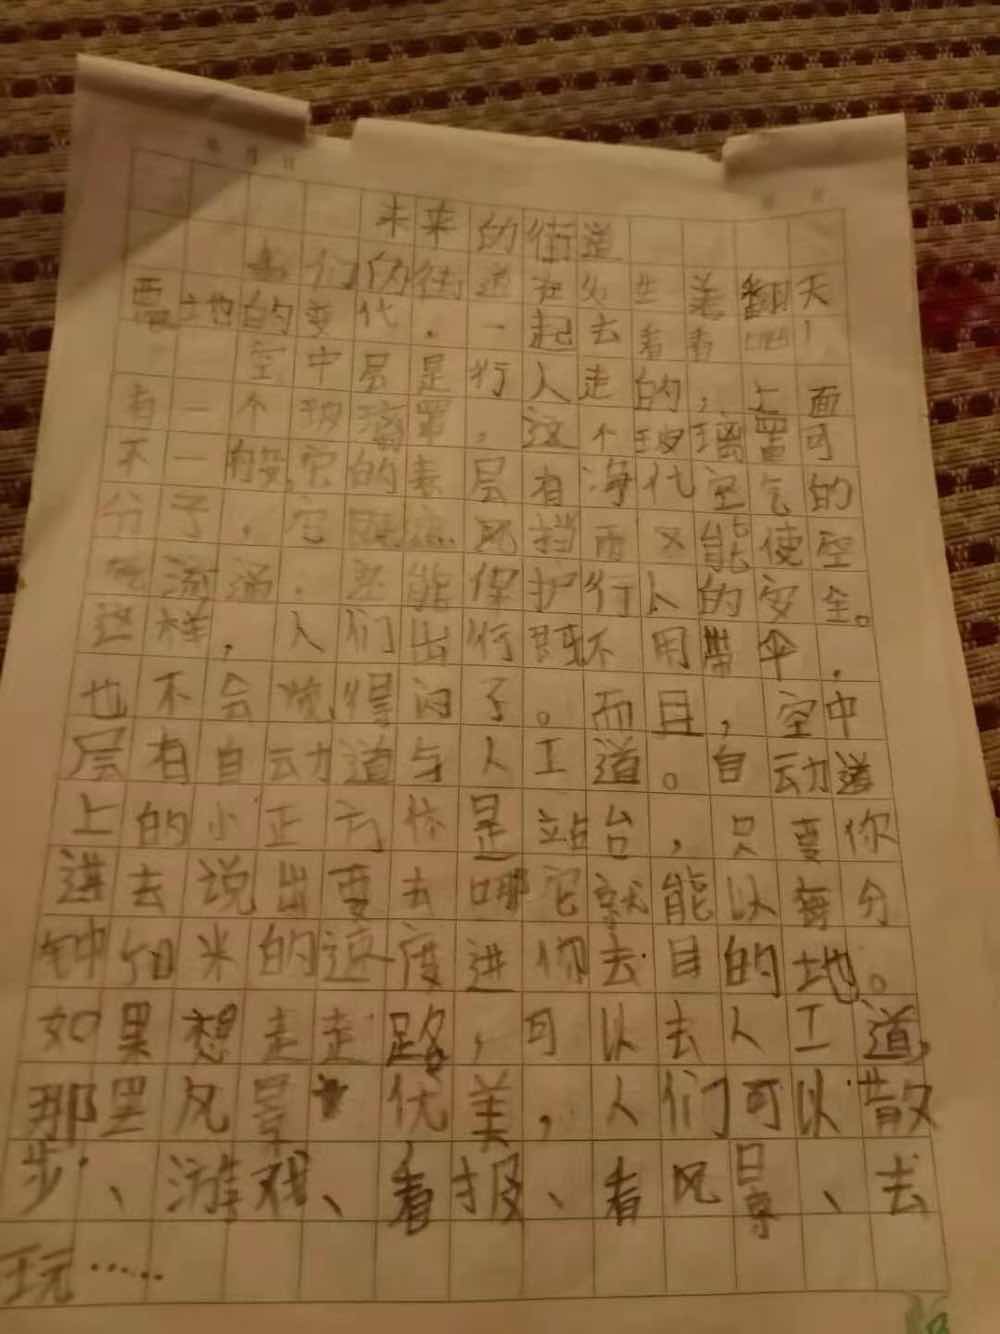 未来的街道
们的街道在发生着翻天
覆地的变化，一起去看看吧！
空中层是行人走的，上面
有一个玻璃罩，这个玻璃罩可
不一般，它的表层有海代空气的
分子，它既遮风挡雨又能使空
气流通，还能保护行人的安全。
这样，人们出行既不用带伞，
也不会觉得闷了。而且，空中
层有自动道与人工道。自动道
上的小正方体是站台，只要你
进去说出要去哪它就能以每分
钟 米的速度进你去目的地。
如果想走走路，可以去人工道，
那里风景优美，人们可以散
步、游戏、看报、看风景、去
玩……